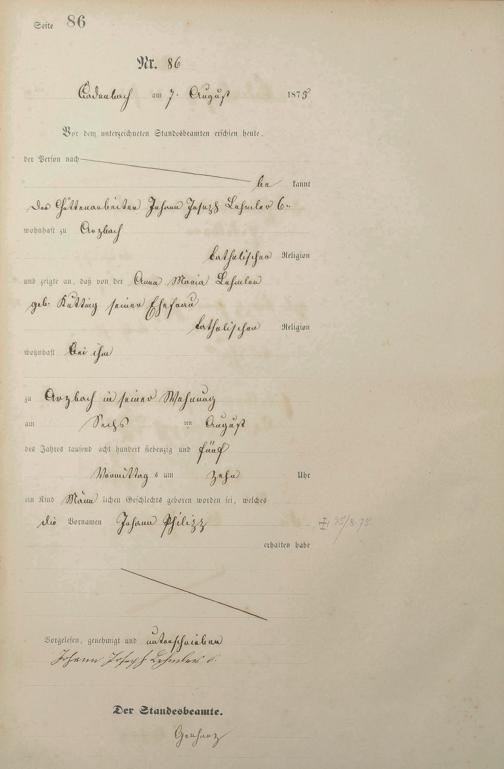 Seite 86
Nr. 86
Cadenbach am 7. August 1875
Vor dem unterzeichneten Standesbeamten erschien heute,
der Person nach
be kannt
der Hüttenarbeiter Johann Joseph Lehmler 6.
wohnhaft zu Arzbach
katholischer Religion
und zeigte an, daß von der Anna Maria Lehmler
geb. Kutting seiner Ehefrau
katholischer Religion
wohnhaft bei ihm
zu Arzbach in seiner Wohnung
am Sechs ten August
des Jahres tausend acht hundert siebenzig und fünf
Vormittag s um zehn Uhr
ein Kind Männ lichen Geschlechts geboren worden sei, welches
die Vornamen Johann Philipp
erhalten habe
Vorgelesen, genehmigt und unterschrieben
Johann Joseph Lehmler 6.
Der Standesbeamte.